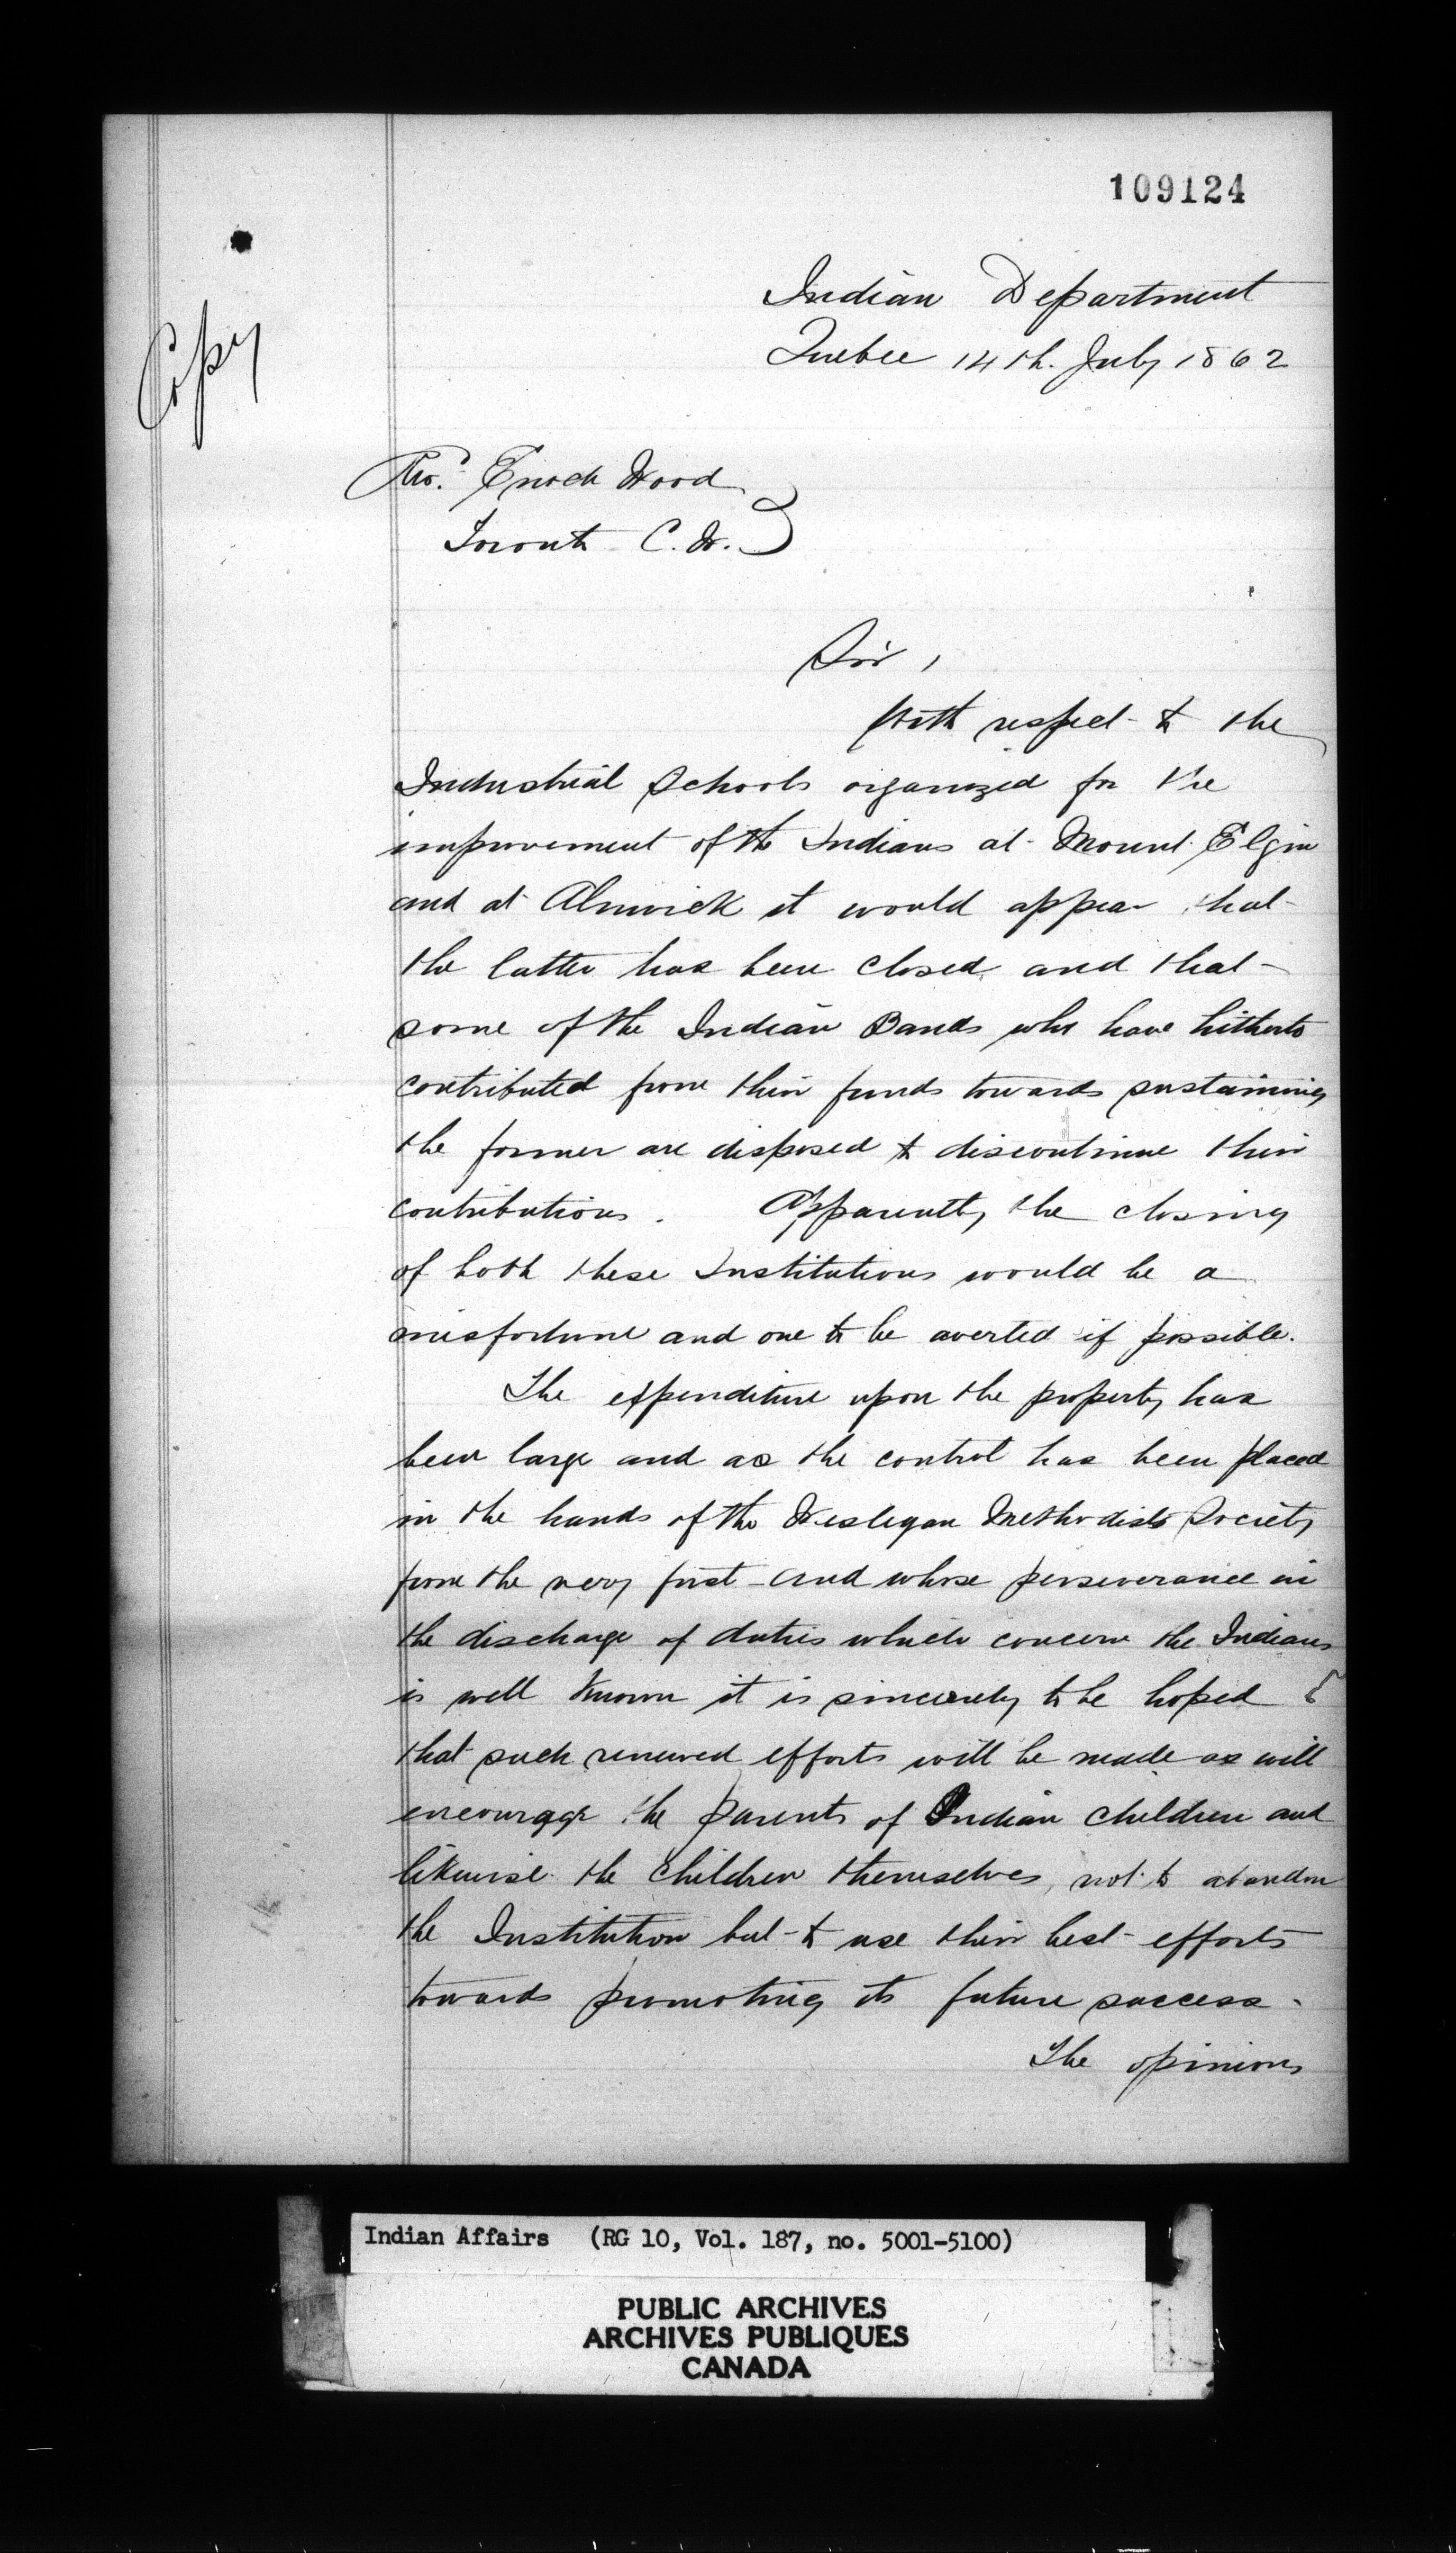 109124
Copy
Indian Department
Quebec 14th. July 1862
Revd. Enoch Wood
Toronto C. W.
Sir,
With respect to the
Industrial Schools organized for the
improvement of the Indians at Mount Elgin
and at Alnwick it would appear that
the latter has been closed and that
some of the Indian Bands who have hitherto
contributed from their funds towards sustaining
the former are disposed to discontinue their
contributions. Apparently the closing
of both these Institutions would be a
misfortune and one to be averted if possible.
The expenditure upon the property has
been large and as the control has been placed
in the hands of the Wesleyan Methodist Society
from the very first - and whose perseverance in
the discharge of duties which concern the Indians
is well known it is sincerely to be hoped
that such renewed efforts will be made as will
encourage the parents of Indian children and
likewise the children themselves, not to abandon
the Institution but to use their best efforts
towards promoting its future success.
The opinions
Indian Affairs (RG 10, Vol. 187, no. 5001-5100)
PUBLIC ARCHIVES
ARCHIVES PUBLIQUES
CANADA